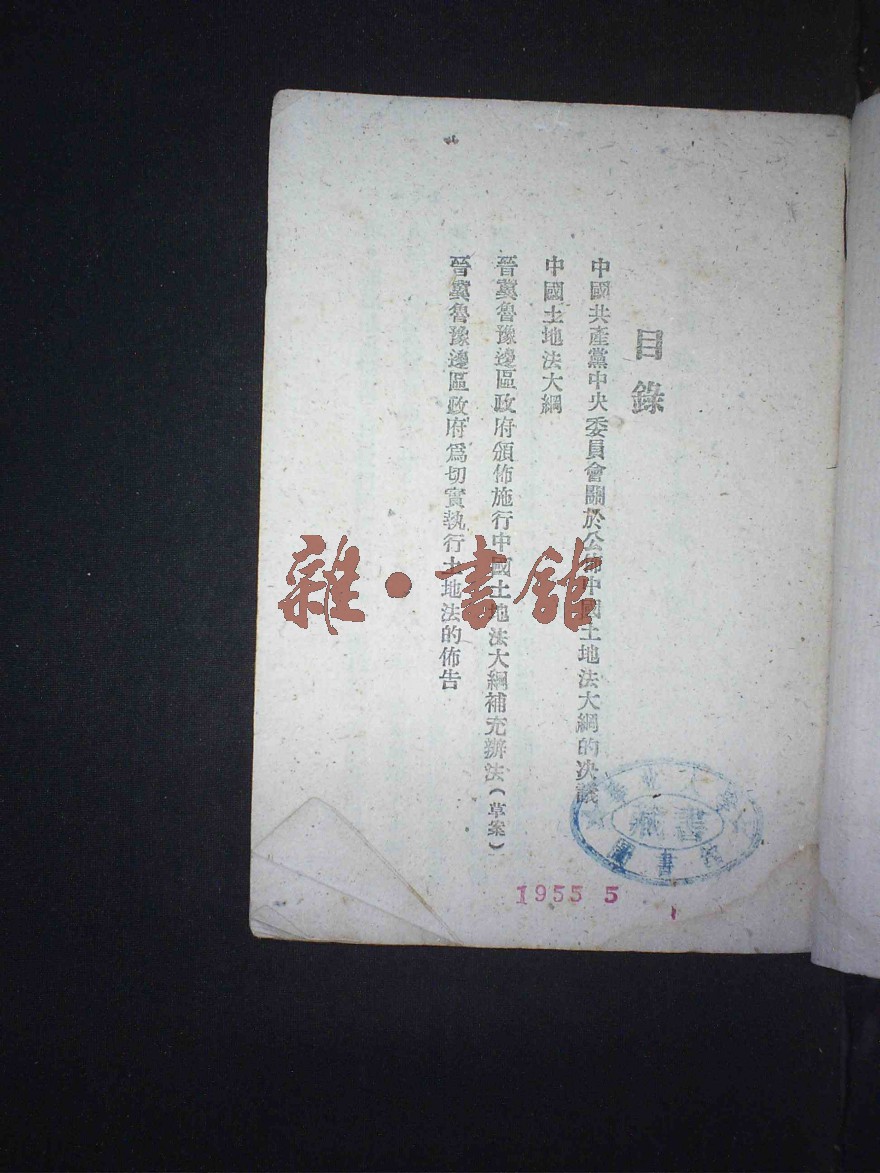 目錄
中國共產黨中央委員會關於公佈中國土地法大綱的決議
中國土地法大綱
晉冀魯豫邊區政府頒佈施行中國土地法大綱補充辦法(草案)
晉冀魯豫邊區政府爲切實執行土地法的佈告
雜·書館
藏書
圖書館
1955 5